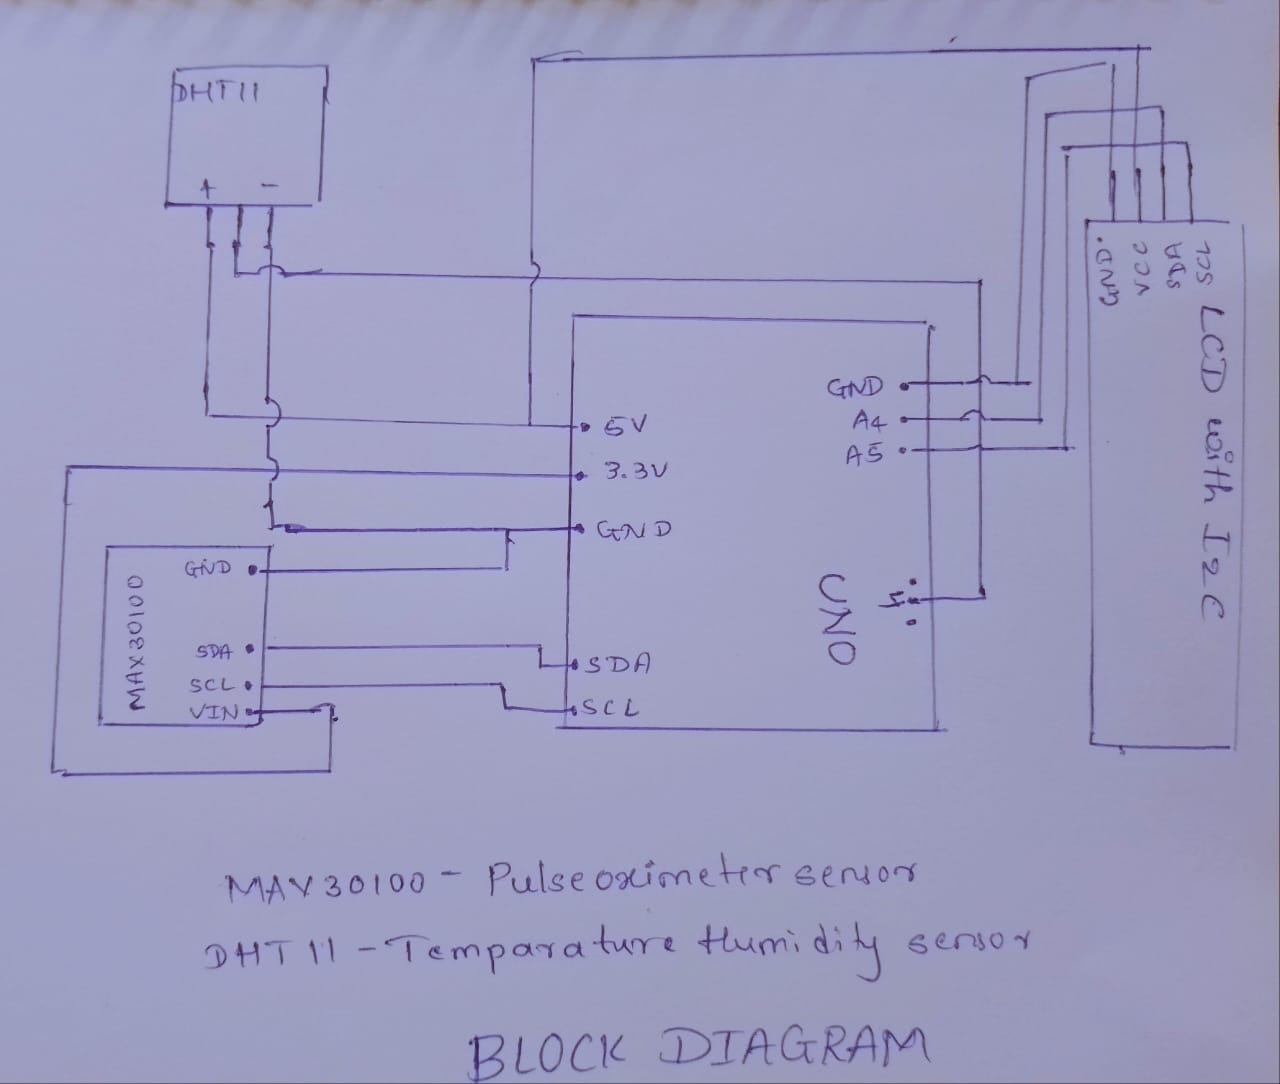 DHT11
+ -
GND. VCC SDA SCL
LCD with I2C
5V
3.3V
GND
SDA
SCL
GND
A4
A5
4
UNO
MAX30100
GND
SDA
SCL
VIN
MAX30100 - Pulseoximeter sensor
DHT11 - Temparature Humidity sensor
BLOCK DIAGRAM